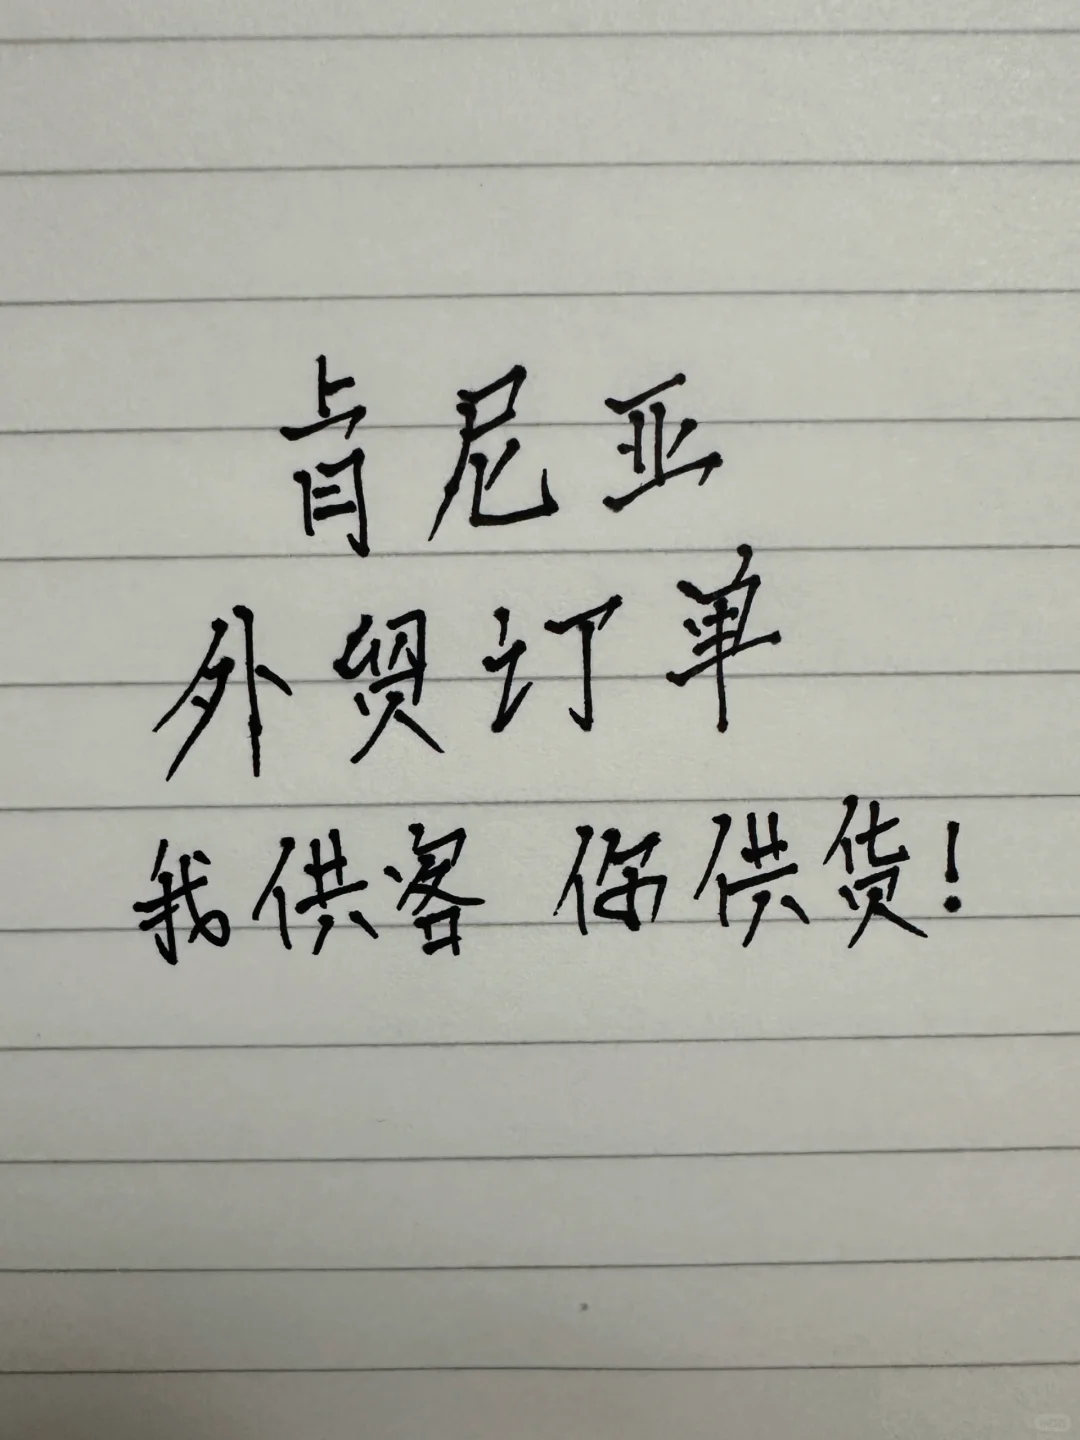 肯尼亚
外贸订单
我供客 你供货!